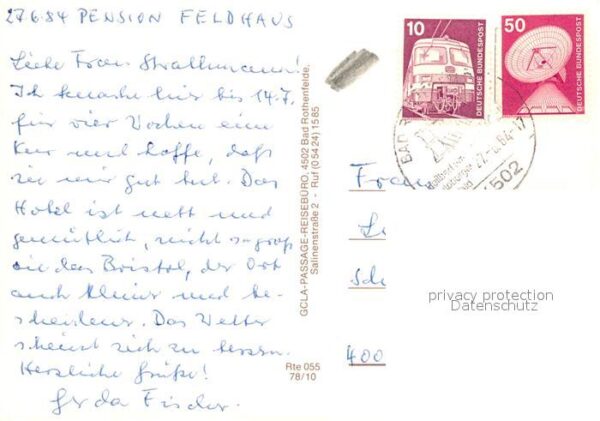 27.6.84 PENSION FELDHAUS
Liebe Frau Strathmann!
Ich mache hier bis 14.7.
für vier Wochen eine
Kur und hoffe, daß
sie mir gut tut. Das
Hotel ist nett und
gemütlich, nicht so groß
wie das Bristol, der Ort
auch kleiner und be-
scheidener. Das Wetter
scheint sich zu bessern.
Herzliche Grüße!
Gerda Fischer
GCLA-PASSAGE-REISEBÜRO, 4502 Bad Rothenfelde,
Salinenstraße 2 - Ruf (05424) 1585
Rte 055
78/10
10
DEUTSCHE BUNDESPOST
50
DEUTSCHE BUNDESPOST
BAD
27.-6.84-17
4502
Frau
L
Sch
400
privacy protection
Datenschutz